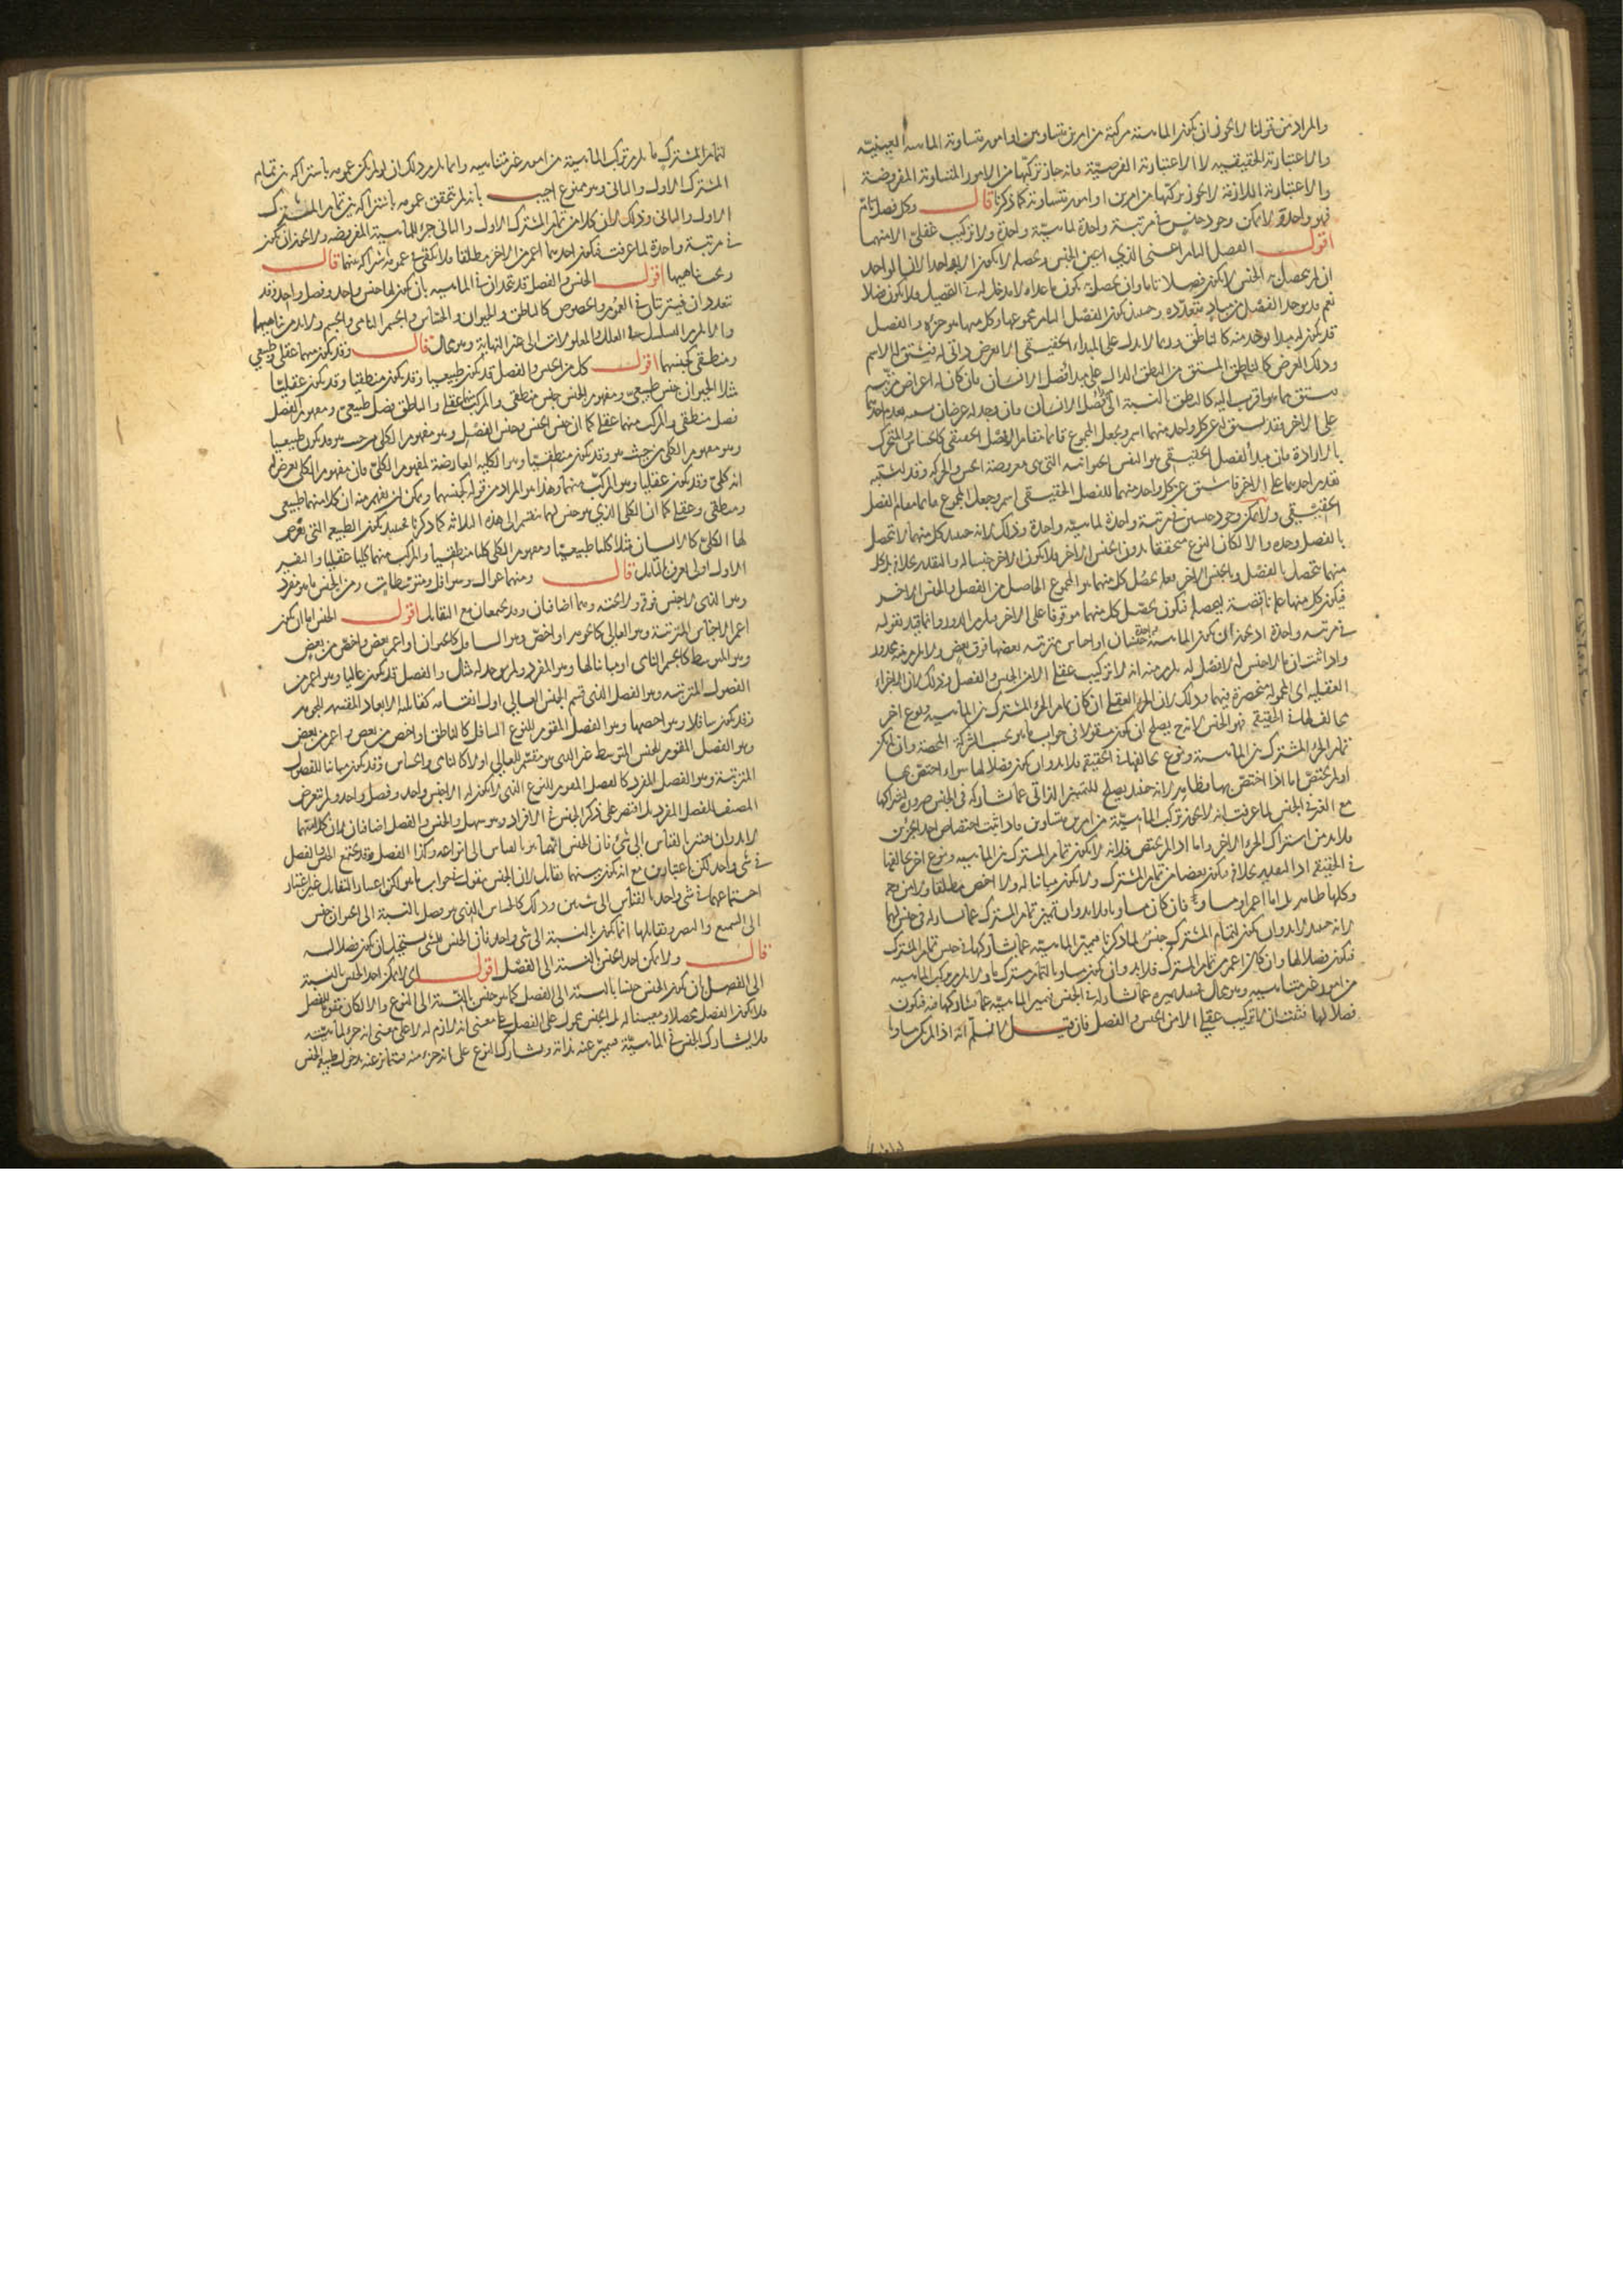 والمراد من قولنا لا يجوز ان يكون الماهية مركبة من امرين متساويين او امور متساوية الماهية العينية
والاعتبارية الحقيقية لا الاعتبارية الفرضية فانه جاز تركبها من الامور المتساوية المفروضة
والاعتبارية اللازمة لا يجوز تركبها من امرين او امور متساوية كما ذكرنا قال وكل فصل تام
فهو واحد ولا يمكن وجود جنسين في مرتبة واحدة لماهية واحدة ولا تركيب عقلي الا منهما
اقول الفصل التام اعنى الذي يعين الجنس ويحصله لا يكون الا واحدا لان الواحد
ان لم يحصل به الجنس لا يكون فصلا تاما وان يحصل به يكون ما عداه لا مدخل له في التحصيل فلا يكون فصلا
نعم قد يوجد الفصل من مباد متعددة وحينئذ يكون الفصل التام مجموعها وكل منها هو جزؤه والفصل
قد يكون له مبدا يوخذ منه كالناطق وربما لا يدل على المبداء الحقيقي الا بعرض ذاتي له فيشتق له الاسم
وذلك العرض كالناطق المشتق من النطق الدال على مبدا فصل الانسان فان كان له اعراض مترتبة
يشتق مما هو اقرب اليه كالناطق بالنسبة الى فصل الانسان فان وجد له عرضان يشتبه تقدم احدهما
على الاخر فقد يشتق له عن كل واحد منهما اسم ويجعل المجموع قائما مقام الفصل الحقيقي كالحساس والمتحرك
بالارادة فان مبدأ الفصل الحقيقي هو النفس الحيوانية التي هي معروضة الحس والحركة وقد اشتبه
تقدم احدهما على الاخر فاشتق عن كل واحد منهما للفصل الحقيقي اسم وجعل المجموع قائما مقام الفصل
الحقيقي ولا يمكن وجود جنسين في مرتبة واحدة لماهية واحدة وذلك لانه حينئذ كل منهما لا يتحصل
بالفصل وحده والا لكان النوع متحققا بدون الجنس الاخر فلا يكون الاخر جنسا له والمقدر خلافه بل كل
منهما يتحصل بالفصل وبالجنس الاخر فعلة تحصل كل منهما هو المجموع الحاصل من الفصل والجنس الاخر
فيكون كل منهما علة ناقصة لتحصله فيكون تحصل كل منهما موقوفا على الاخر فيلزم الدور وانما قيد بقوله
في مرتبة واحدة اذ يجوز ان يكون لماهية واحدة جنسان او اجناس مترتبة بعضها فوق بعض ولا يلزم منه محذور
واذا ثبت ان ما لا جنس له لا فصل له يلزم منه انه لا تركيب عقلي الا من الجنس والفصل وذلك لان الاجزاء
العقلية اى المحمولة منحصرة فيهما وذلك لان الجزء العقلي ان كان تمام الجزء المشترك بين الماهية ونوع اخر
مخالف لها في الحقيقة فهو الجنس لانه ح يصلح ان يكون مقولا في جواب ما هو بحسب الشركة المحضة وان لم يكن
تمام الجزء المشترك بين الماهية ونوع مخالف لها في الحقيقة فلا بد وان يكون فصلا لها سواء اختص بها
او لم يختص اما اذا اختص بها فظاهر لانه حينئذ يصلح للتمييز الذاتي عما شاركه في الجنس ضرورة اشتراكها
مع الغير في الجنس لما عرفت انه لا يجوز تركب الماهية من امرين متساويين فاذا ثبت اختصاص احد الجزئين
فلا بد من اشتراك الجزء الاخر واما اذا لم يختص فلانه لا يكون تمام المشترك بين الماهية ونوع اخر مخالف لها
في الحقيقة اذ التقدير خلافه فيكون بعضا من تمام المشترك ولا يكون مباينا له ولا اخص مطلقا ولا من وجه
وكلها ظاهر بل اما اعم او مساو فان كان مساويا فلا بد وان يميز تمام المشترك عما يشاركه في جنس لها
لانه حينئذ لا بد وان يكون لتمام المشترك جنس لما ذكرنا فيميز الماهية عما يشاركها في جنس تمام المشترك
فيكون فصلا لها وان كان اعم من تمام المشترك فلا بد وان يكون مساويا لتمام مشترك ما ولا يلزم تركب الماهية
من امور غير متناهية وهو محال فعند تمييزه عما شاركه في الجنس تميز الماهية عما يشاركها فيه فيكون
فصلا لها فثبت ان لا تركيب عقلي الا من الجنس والفصل فان قيل لا نسلم انه اذا لم يكن مساويا
لتمام المشترك ما يلزم تركب الماهية من امور غير متناهية وانما يلزم ذلك ان لو لم يكن عمومه باشتراكه بين تمام
المشترك الاول والثاني وهو ممنوع اجيب بانه لم يتحقق عمومه باشتراكه بين تمام المشترك
الاول والثاني وذلك لان كلا من تمام المشترك الاول والثاني جزء للماهية المفروضة ولا يجوز ان يكون
في مرتبة واحدة لما عرفت فيكون احدهما اعم من الاخر مطلقا فلا يكفي في عمومه اشتراكه بينهما قال
ويجب تناهيهما اقول الجنس والفصل قد يتحدان في الماهية بان يكون لها جنس واحد وفصل واحد وقد
يتعددان فيترتبان في العموم والخصوص كالناطق والحيوان والحساس والجسم النامى والجسم ولا بد من تناهيهما
والا لزم التسلسل في العلل والمعلولات الى غير النهاية وهو محال قال وقد يكون منهما عقلي وطبيعي
ومنطقي كجنسهما اقول كل من الجنس والفصل قد يكون طبيعيا وقد يكون منطقيا وقد يكون عقليا
مثلا الحيوان جنس طبيعي ومفهوم الجنس جنس منطقي والمركب منهما عقلي والناطق فصل طبيعي ومفهوم الفصل
فصل منطقي والمركب منهما عقلي كما ان جنس الجنس وجنس الفصل وهو مفهوم الكلي من حيث هو قد يكون طبيعيا
وهو مفهوم الكلي من حيث هو وقد يكون منطقيا وهو الكلية العارضة لمفهوم الكلي فان مفهوم الكلي يعرض له
انه كلي وقد يكون عقليا وهو المركب منهما وهذا هو المراد من قوله كجنسهما ويمكن ان يفهم منه ان كلا منهما طبيعي
ومنطقي وعقلي كما ان الكلي الذي هو جنس لهما ينقسم الى هذه الثلاثة كما ذكرنا فحينئذ يكون الطبيعة التى يعرض
لها الكلي كالانسان مثلا كليا طبيعيا ومفهوم الكلي كليا منطقيا والمركب منهما كليا عقليا والتفسير
الاول اولى يعرف بالتامل قال ومنهما عوال وسوافل ومتوسطات ومن الجنس ما هو مفرد
وهو الذى لا جنس فوقه ولا تحته وهما اضافيان وقد يجتمعان مع التقابل اقول الجنس اما ان يكون
اعم الاجناس المترتبة وهو العالي كالجوهر او اخص وهو السافل كالحيوان او اعم من بعض واخص من بعض
وهو المتوسط كالجسم النامى او مباينا لها وهو المفرد ولم يوجد له مثال والفصل قد يكون عاليا وهو اعم من
الفصول المترتبة وهو الفصل الذى قسم الجنس العالي اول انقسامه كقابل الابعاد المقسم للجوهر
وقد يكون سافلا وهو اخصها وهو الفصل المقوم للنوع السافل كالناطق او اخص من بعض واعم من بعض
وهو الفصل المقوم للجنس المتوسط غير الذى هو مقسم للعالي اولا كالنامى والحساس وقد يكون مباينا للفصول
المترتبة وهو الفصل المفرد كالفصل المقوم للنوع الذى لا يكون له الا جنس واحد وفصل واحد ولم يتعرض
المصنف للفصل المفرد بل اقتصر على ذكر الجنس في الافراد وهو سهل والجنس والفصل اضافيان فان كلا منهما
لا بد وان يعتبر بالقياس الى شئ فان الجنس انما هو بالقياس الى انواعه وكذا الفصل وقد يجتمع الجنس والفصل
في شئ واحد لكن باعتبارين مع انه يكون بينهما تقابل لان الجنس مقول في جواب ما هو لكن اعتبار التقابل غير اعتبار
اجتماعهما في شئ واحد بالقياس الى شيئين وذلك كالحساس الذى هو فصل بالنسبة الى الحيوان جنس
الى السميع والبصير وتقابلهما انما يكون بالنسبة الى شئ واحد فان الجنس لشئ يستحيل ان يكون فصلا له
قال ولا يمكن اخذ الجنس بالنسبة الى الفصل اقول اى لا يمكن اخذ الجنس بالنسبة
الى الفصل بان يكون الجنس جنسا بالنسبة الى الفصل كما هو جنس بالنسبة الى النوع والا لكان مقوما للفصل
فلا يكون الفصل محصلا ومعينا له بل الجنس محمول على الفصل على معنى انه لازم له لا على معنى انه جزء لماهيته
فلا يشارك الجنس في الماهية فيميز عنه بذاته ويشارك النوع على انه جزء منه فيتمايز عنه بدخول طبيعة الجنس